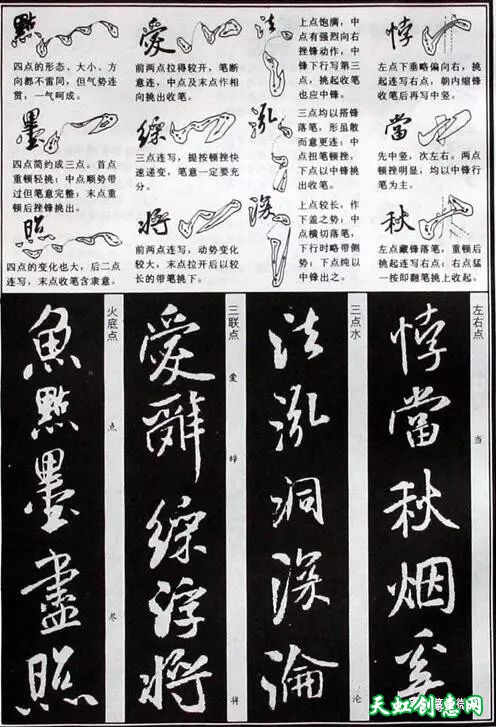 點
四点的形态、大小、方
向都不雷同，但气势连
贯，一气呵成。
愛
前两点拉得较开，笔断
意连，中点及末点作相
向挑出收笔。
法
上点饱满，中
点有强烈向右
挫锋动作，中
锋下行写第三
点，挑起收笔
也应中锋。
悸
左点下垂略偏向右，挑
起连写右点，朝内缩锋
收笔后再写中竖。
墨
四点简约成三点。首点
重顿轻挑；中点顺势带
过但笔意完整；末点重
顿后挫锋挑出。
綵
三点连写，提按顿挫快
速递变，笔意一定要充
分。
泓
三点均以搭锋
落笔，形虽散
而意更连；中
点扭笔顿挫，
下点以中锋挑
出收笔。
當
先中竖，次左右。两点
顿挫明显，均以中锋行
笔为主。
照
四点的变化也大，后二点
连写，末点收笔含隶意。
將
前两点连写，动势变化
较大，末点拉开后以较
长的带笔挑下。
深
上点较长，作
下盖之势；中
点横切落笔，
下行时略带侧
势；下点纯以
中锋出之。
秋
左点藏锋落笔，重顿后
挑起连写右点；右点猛
一按即翻笔挑上收起。
左右点
当
悸當秋烟奚
三点水
沦
法泓洞深淪
三联点
爱
将
愛辭綵浮將
火底点
点
尽
魚點墨盡照
天虹创意网